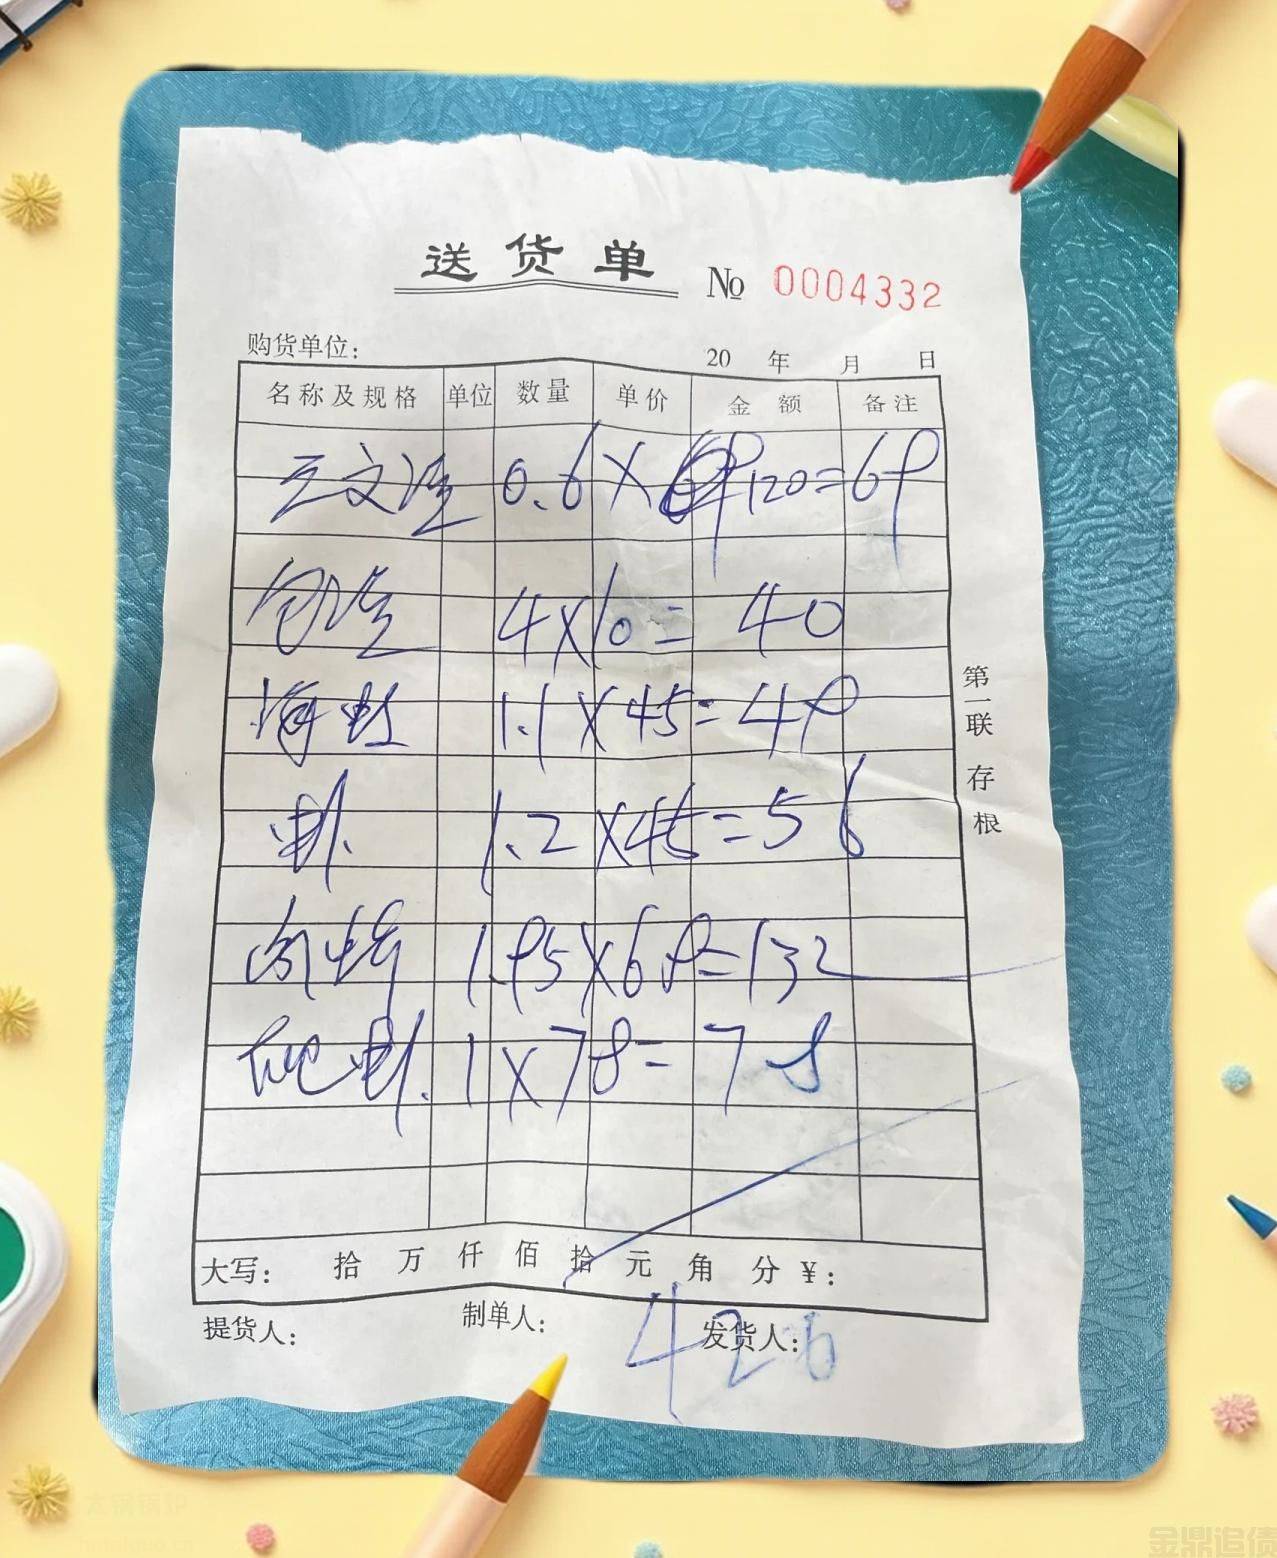 送货单 № 0004332
购货单位： 20 年 月 日
名称及规格 单位 数量 单价 金额 备注
三文鱼 0.6 X 120=69
4X10= 40
海虹 1.1X45=49
1.2X45=56
1.95X68=132
1X78=78
大写： 拾 万 仟 佰 拾 元 角 分 ¥：
提货人： 制单人： 发货人：
426
第一联 存根
金鼎追债